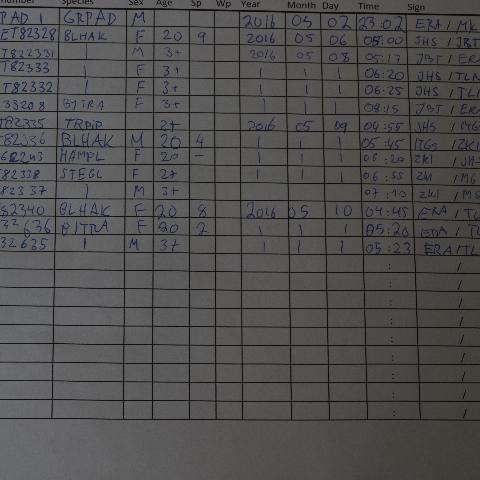 number Species Sex Age Sp Wp Year Month Day Time Sign
PAD 1 GRPAD M 2016 05 02 23:02 ERA / MK
ET82328 BLHAK F 20 9 2016 05 06 05:00 JHS / JBT
T822331 M 3+ 2016 05 08 05:17 JBT / ERA
T82333 | F 3+ | | | 06:20 JHS / TLN
T82332 | F 3+ | | | 06:25 JHS / TLI
33208 BJTRA F 3+ | | | 08:15 JBT / ER
T82335 2+ 2016 05 09 04:55 JHS
82336 BLHAK M 20 4 | | | 05:45
HAMPL F 20 - | | | 06:20 ZKI / JH
82338 STEGL F 2+ | | | 06:55 ZKI / MG
82337 | M 3+ 07:10 ZKI / MG
82340 BLHAK F 20 8 2016 05 10 04:45 ERA / TL
32636 BJTRA F 20 2 | | | 05:20 ERA / TL
32635 | M 3+ | | | 05:23 ERA/TL
: /
: /
: /
: /
: /
: /
: /
: /
: /